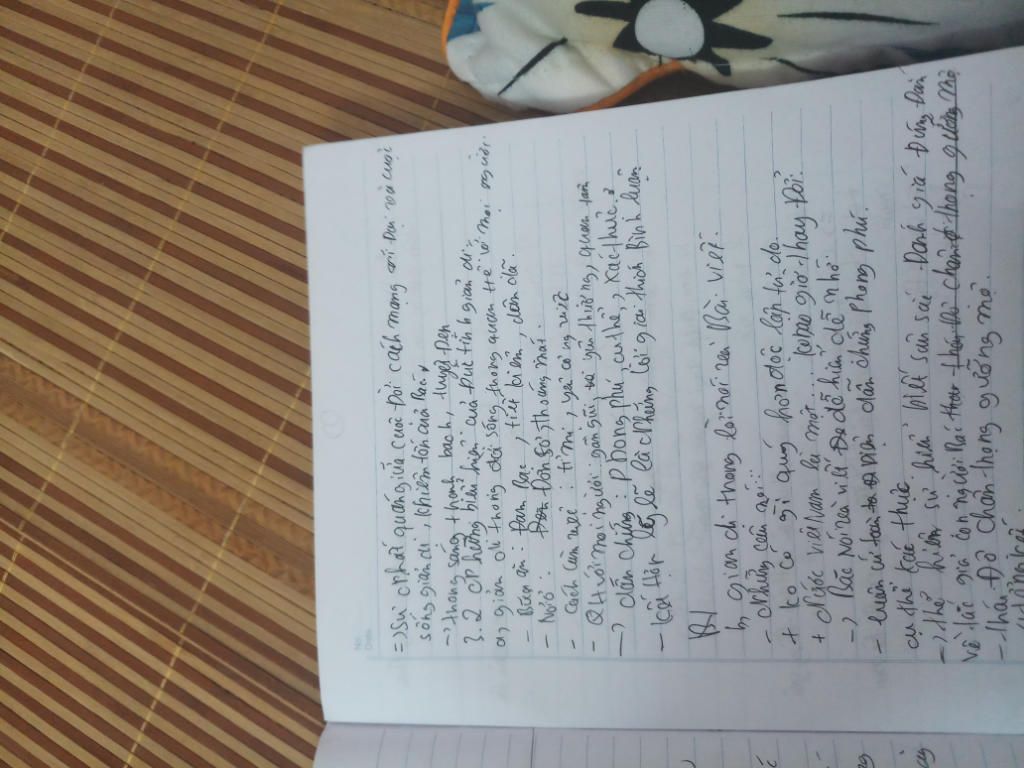 No.
Date
=> Sự nhất quán giữa cuộc đời cách mạng vĩ đại với cuộc
sống giản dị, khiêm tốn của Bác
-> trong sáng thanh bạch, tuyệt đẹp
3.2 những biểu hiện của đức tính giản dị:
a, giản dị trong đời sống, trong quan hệ với mọi người.
- Bữa ăn: Đạm bạc, tiết kiệm, dân dã
- Nơi ở: Đơn sơ, thoáng mát.
- Cách làm việc: tỉ mỉ, yêu công việc
- Qh với mọi người: gần gũi, yêu thương, quan tâm
-> dẫn chứng: Phong phú, cụ thể, xác thực
- kết hợp lý lẽ là chứng lời giải thích Bình luận
b, giản dị trong lời nói và Bài viết.
- Những câu nói:...
+ ko có gì quý hơn độc lập tự do
+ Nước Việt Nam là một... ko bao giờ thay Đổi.
-> Bác Nói và viết dễ hiểu dễ nhớ.
- Luận cứ toàn diện dẫn chứng Phong phú.
cụ thể xác thực
-> thể hiện sự hiểu biết sâu sắc Đánh giá Đúng Đắn
về tác giả con người Bác thái thái chân trọng gương mở
- thái Độ chân trọng gưỡng mở.